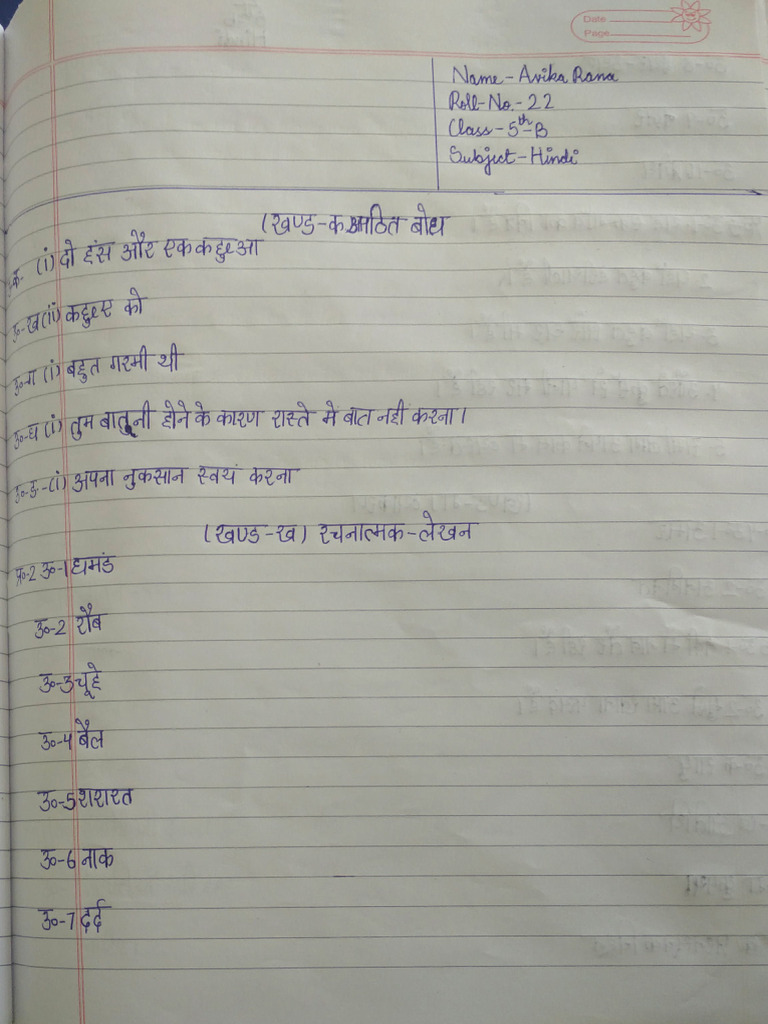 Date
Page
Name - Avika Rana
Roll-No.- 22
Class - 5th-B
Subject - Hindi
(खण्ड-क अपठित बोध
क- (i) दो हंस और एक कछुआ
उ०-ख(ii) कछुए को
उ०-ग (i) बहुत गरमी थी
उ०-घ (i) तुम बातूनी होने के कारण रास्ते में बात नही करना।
उ०-ङ-(i) अपना नुकसान स्वयं करना
(खण्ड-ख) रचनात्मक-लेखन
प्र०-2 उ०-1 घमंड
उ०-2 रौब
उ०-3 चूहे
उ०-4 बैल
उ०-5 शरारत
उ०-6 नाक
उ०-7 दर्द